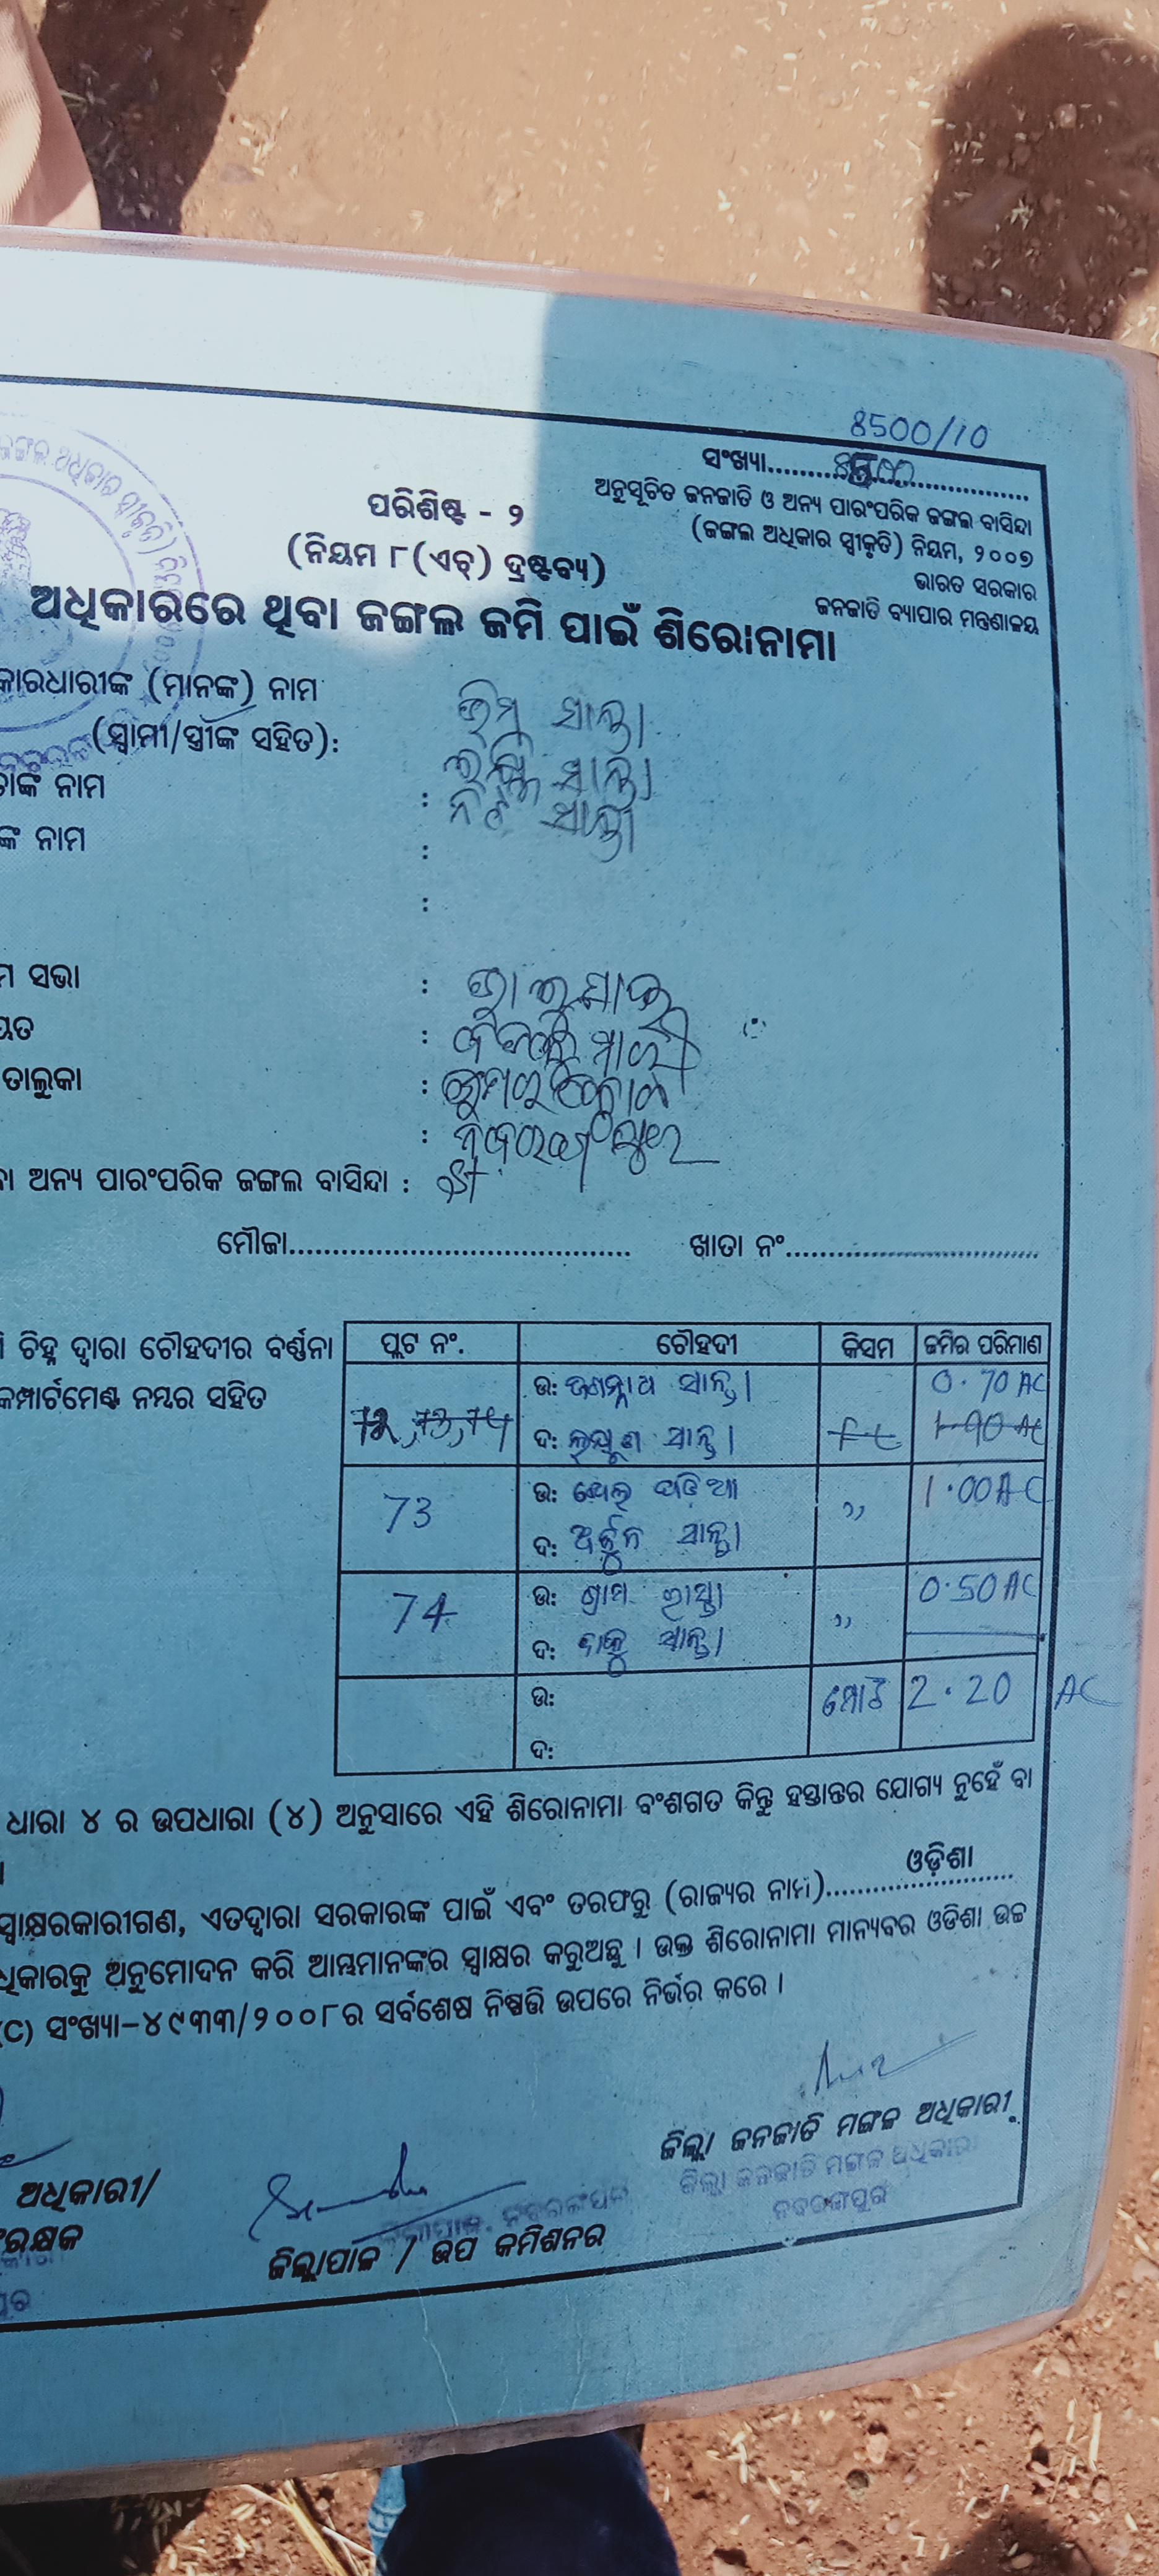 8500/10
ସଂଖ୍ୟା..............................
ଅନୁସୂଚିତ ଜନଜାତି ଓ ଅନ୍ୟ ପାରଂପରିକ ଜଙ୍ଗଲ ବାସିନ୍ଦା
(ଜଙ୍ଗଲ ଅଧିକାର ସ୍ୱୀକୃତି) ନିୟମ, ୨୦୦୭
ଭାରତ ସରକାର
ଜନଜାତି ବ୍ୟାପାର ମନ୍ତ୍ରଣାଳୟ
ପରିଶିଷ୍ଟ - ୨
(ନିୟମ ୮(ଏଚ୍) ଦ୍ରଷ୍ଟବ୍ୟ)
ଅଧିକାରରେ ଥିବା ଜଙ୍ଗଲ ଜମି ପାଇଁ ଶିରୋନାମା
କାରଧାରୀଙ୍କ (ମାନଙ୍କ) ନାମ
(ସ୍ୱାମୀ/ସ୍ତ୍ରୀଙ୍କ ସହିତ): ଭିମ ସାନ୍ତା
ତାଙ୍କ ନାମ : ସାନ୍ତା
ଙ୍କ ନାମ : ସାନ୍ତା
:
ମ ସଭା :
ୟତ :
ତାଲୁକା :
: ନବରଙ୍ଗପୁର
ବା ଅନ୍ୟ ପାରଂପରିକ ଜଙ୍ଗଲ ବାସିନ୍ଦା :
ମୌଜା.................................... ଖାତା ନଂ..............................
ି ଚିହ୍ନ ଦ୍ୱାରା ଚୌହଦୀର ବର୍ଣ୍ଣନା
କମ୍ପାର୍ଟମେଣ୍ଟ ନମ୍ବର ସହିତ
ପ୍ଲଟ ନଂ. ଚୌହଦୀ କିସମ ଜମିର ପରିମାଣ
ଉ: ଜଗନ୍ନାଥ ସାନ୍ତା 0.70 AC
72, 73, 74 ଦ: ଲକ୍ଷ୍ମଣ ସାନ୍ତା 1.90 AC
73 ଉ: ପଡିଆ ,, 1.00 AC
ଦ: ଅର୍ଜୁନ ସାନ୍ତା
74 ଉ: ଗ୍ରାମ ରାସ୍ତା ,, 0.50 AC
ଦ: ସାନ୍ତା
ଉ: ମୋଟ 2.20 AC
ଦ:
ଧାରା ୪ ର ଉପଧାରା (୪) ଅନୁସାରେ ଏହି ଶିରୋନାମା ବଂଶଗତ କିନ୍ତୁ ହସ୍ତାନ୍ତର ଯୋଗ୍ୟ ନୁହେଁ ବା
ସ୍ୱାକ୍ଷରକାରୀଗଣ, ଏତଦ୍ୱାରା ସରକାରଙ୍କ ପାଇଁ ଏବଂ ତରଫରୁ (ରାଜ୍ୟର ନାମ)......ଓଡ଼ିଶା......
ଧିକାରକୁ ଅନୁମୋଦନ କରି ଆମ୍ଭମାନଙ୍କର ସ୍ୱାକ୍ଷର କରୁଅଛୁ । ଉକ୍ତ ଶିରୋନାମା ମାନ୍ୟବର ଓଡିଶା ଉଚ୍ଚ
(C) ସଂଖ୍ୟା-୪୯୩୩/୨୦୦୮ର ସର୍ବଶେଷ ନିଷ୍ପତ୍ତି ଉପରେ ନିର୍ଭର କରେ ।
ଅଧିକାରୀ/
ଂରକ୍ଷକ
ଜିଲ୍ଲାପାଳ / ଉପ କମିଶନର
ଜିଲ୍ଲା ଜନଜାତି ମଙ୍ଗଳ ଅଧିକାରୀ
ଜିଲ୍ଲା ଜନଜାତି ମଙ୍ଗଳ ଅଧିକାରୀ
ନବରଙ୍ଗପୁର